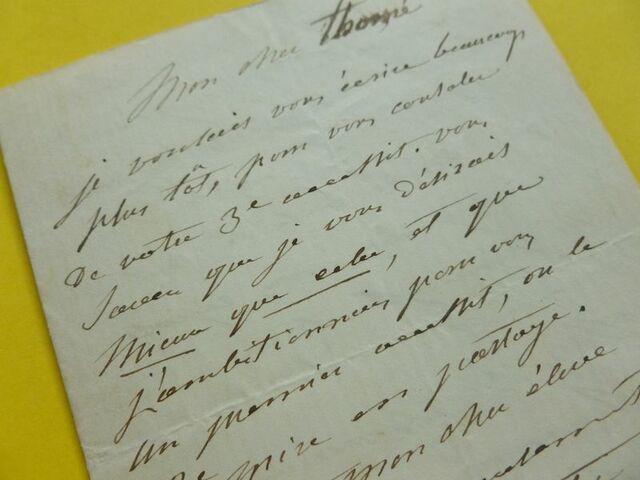 Mon cher Thomé
je voulais vous écrire beaucoup
plus tôt, pour vous consoler
de votre 3e accessit. vous
savez que je vous désirais
Mieux que cela, et que
j'ambitionnais pour vous
un premier accessit, ou le
prix en partage.
Mon cher élève